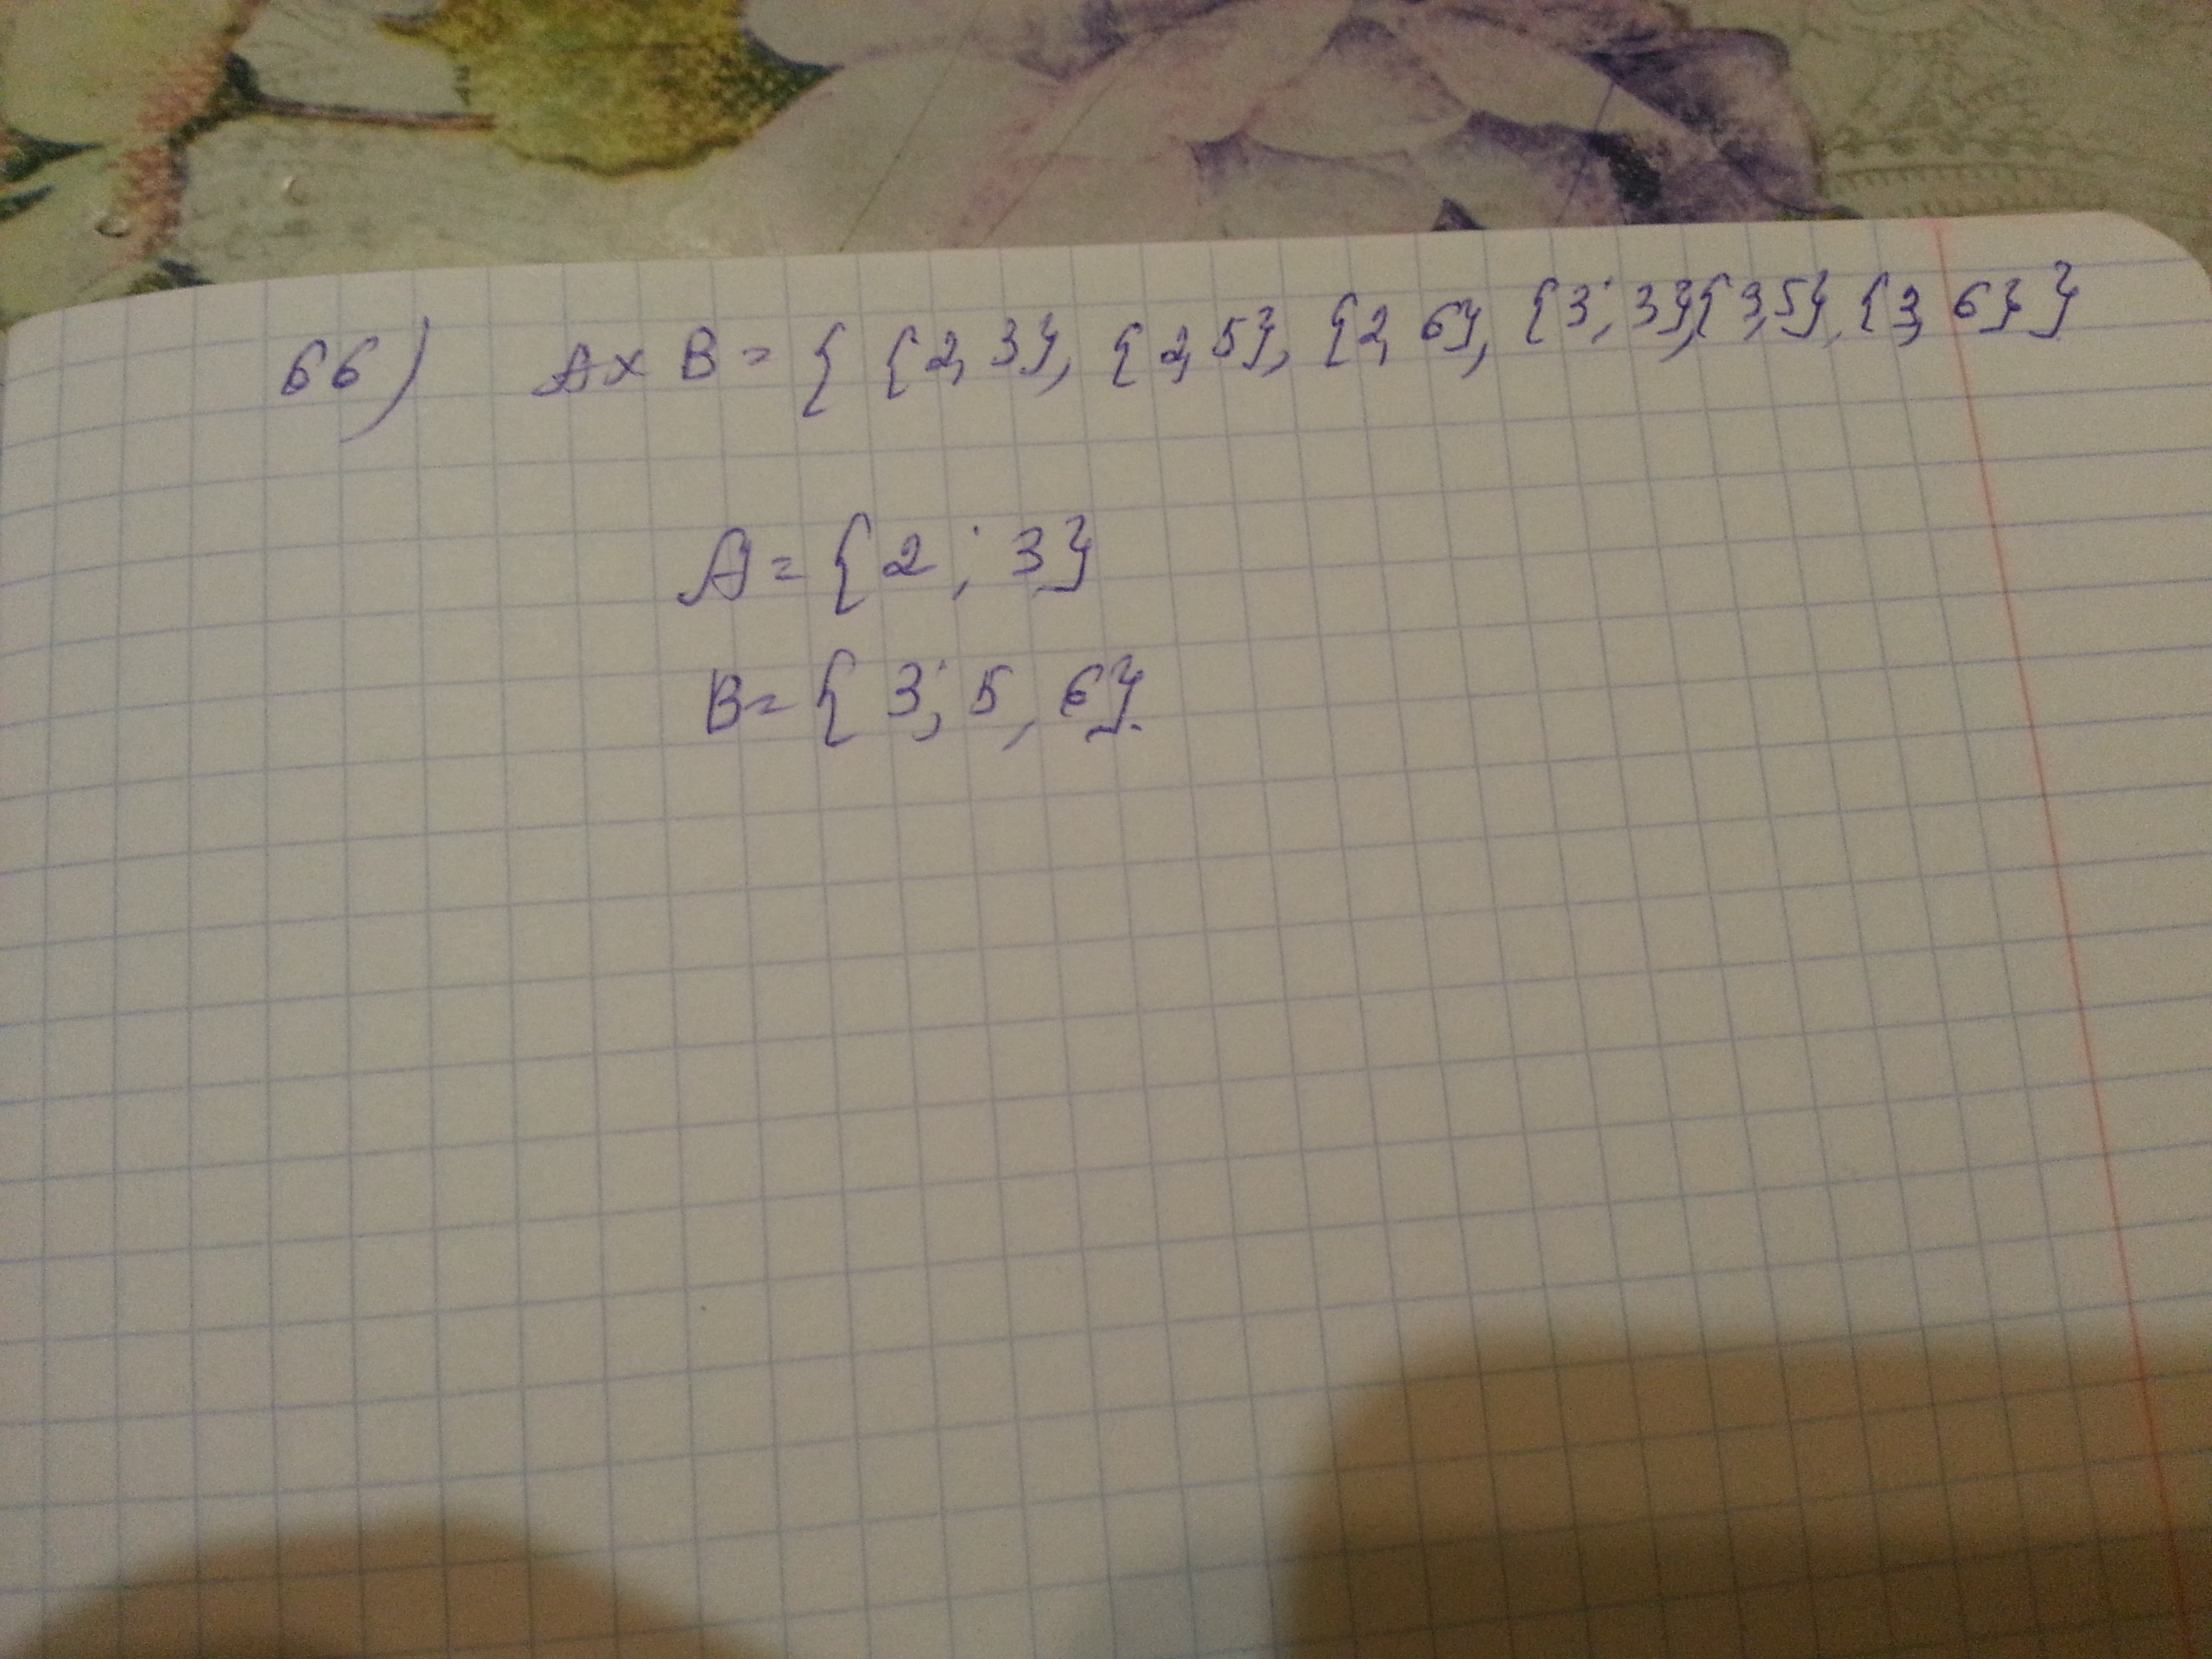 66) A x B = { {2, 3}, {2, 5}, {2, 6}, {3; 3},{3,5}, {3, 6} }
A = {2 ; 3}
B = { 3; 5, 6}.